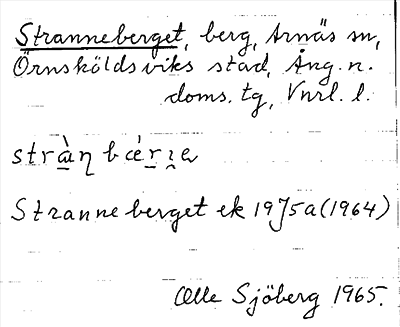 Stranneberget, berg, Arnäs sn,
Örnsköldsviks stad, Ång. n.
doms. tg, Vnrl. l.
Stranneberget ek 19J5a (1964)
Olle Sjöberg 1965.